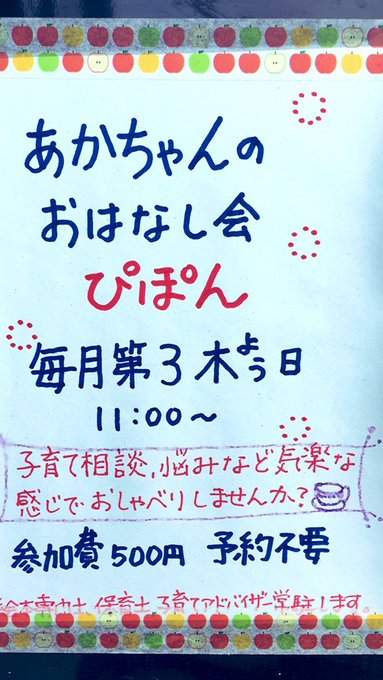 あかちゃんの
おはなし会
ぴぽん
毎月第3木よう日
11:00～
子育て相談、悩みなど気楽な
感じでおしゃべりしませんか?
参加費500円 予約不要
絵本専門士 保育士 子育てアドバイザー常駐します。